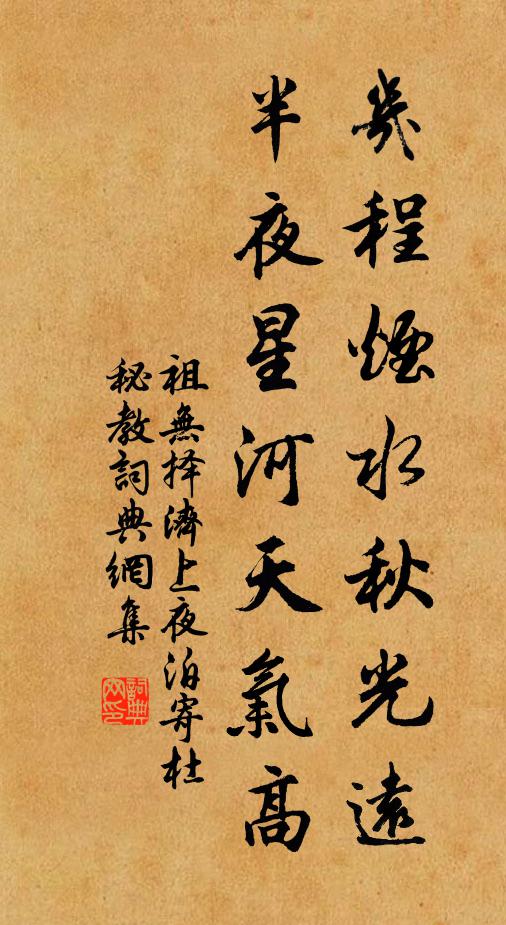 幾程煙水秋光遠
半夜星河天氣高
祖無择濟上夜泊寄杜
秘教詞典網集
詞典網印